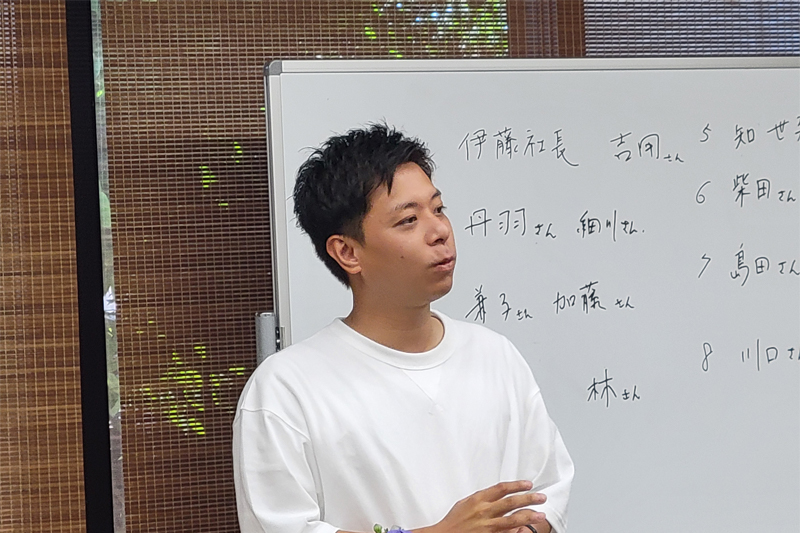 伊藤社長 吉田さん 5 知世
丹羽さん 細川さん. 6 柴田さん
兼子さん 加藤さん 7 島田さん
林さん 8 川口さん